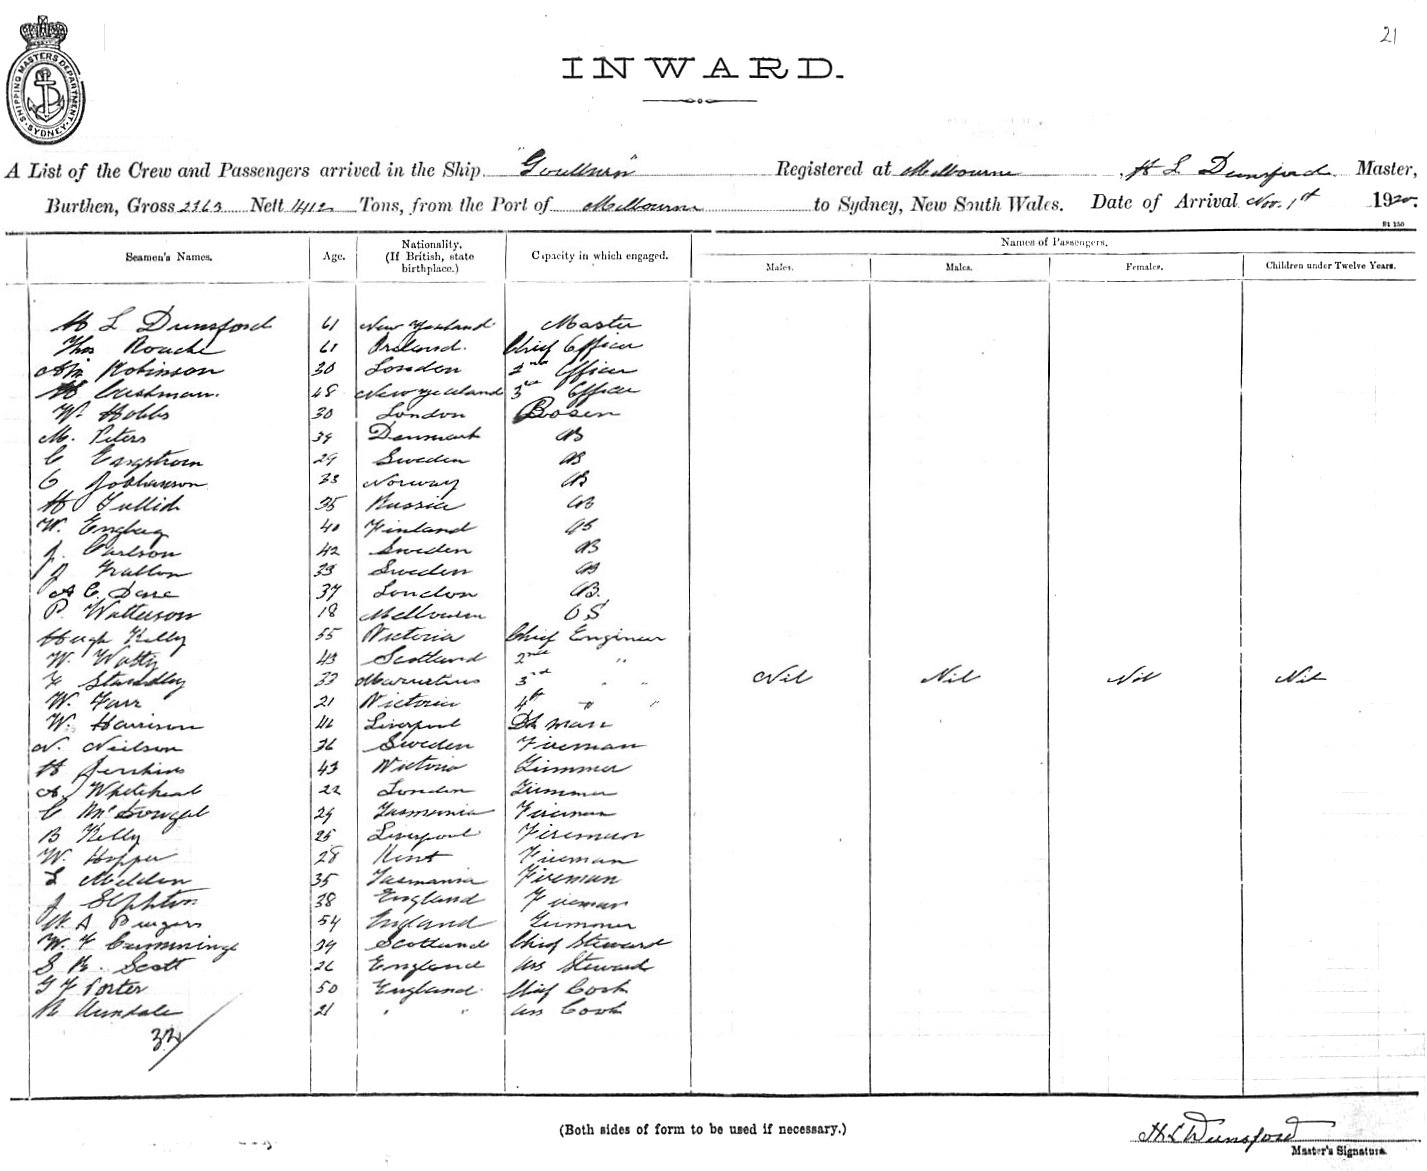 21
SHIPPING MASTERS DEPARTMENT SYDNEY
INWARD.
A List of the Crew and Passengers arrived in the Ship "Goulburn" Registered at Melbourne, H L Dunsford Master,
Burthen, Gross 2363 Nett 1412 Tons, from the Port of Melbourne to Sydney, New South Wales. Date of Arrival Nov. 1st 1920.
Seamen's Names. Age. Nationality. (If British, state birthplace.) Capacity in which engaged. Names of Passengers.
Males. Males. Females. Children under Twelve Years.
H L Dunsford 61 New Zealand Master
Thos Roache 61 Ireland. Chief Officer
Robinson 30 London 2nd Officer
H Cushman. 48 New Zealand 3rd Officer
W. Hobbs 30 London Bosun
M. Peters 39 Denmark AB
C Engstrom 29 Sweden AB
C Johanson 33 Norway AB
H 35 Russia AB
W. Engberg 40 Finland AB
J. Carlson 42 Sweden AB
J 33 Sweden AB
A C. Dare 37 London AB.
P. Watterson 18 Melbourne OS
Hugh Kelly 55 Victoria Chief Engineer
W. Watty 43 Scotland 2nd "
F Standley 33 Mauritius 3rd " "
Nil Nil Nil Nil
W. Farr 21 Victoria 4th " "
W. Harrison Liverpool man
N. Neilson 36 Sweden Fireman
H Jenkins 43 Victoria Trimmer
A Whitehead 22 London Trimmer
C McDougal 29 Tasmania Fireman
B Kelly 25 Liverpool Fireman
W. Hopper 28 Kent Fireman
L 35 Tasmania Fireman
J Stephton 38 England Fireman
W. A 54 England Trimmer
W. F Cummings 39 Scotland Chief Steward
S R. Scott 26 England Ass Steward
G F Porter 50 England Chief Cook
R Arundale 21 " " Ass Cook
32
(Both sides of form to be used if necessary.)
H L Dunsford
Master's Signature.